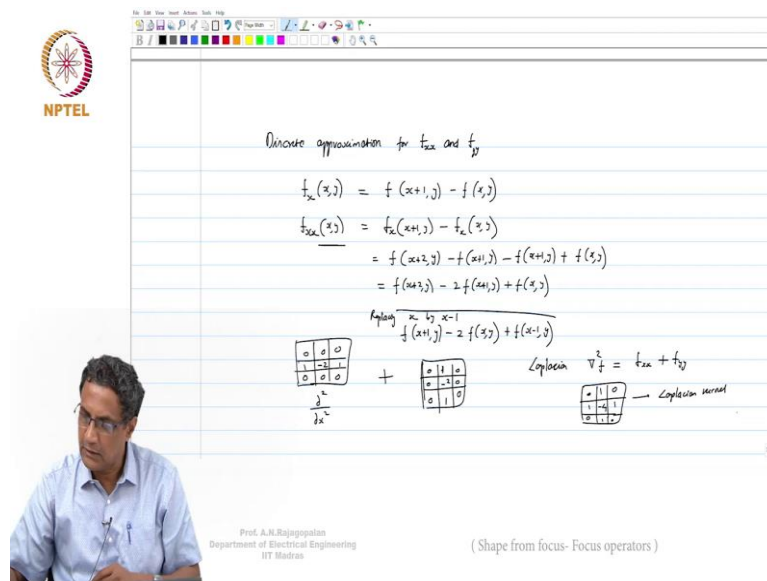 File Edit View Insert Actions Tools Help
Page Width
B I
NPTEL
Discrete approximation for fxx and fyy
fx(x,y) = f(x+1,y) - f(x,y)
fxx(x,y) = fx(x+1,y) - fx(x,y)
= f(x+2,y) - f(x+1,y) - f(x+1,y) + f(x,y)
= f(x+2,y) - 2f(x+1,y) + f(x,y)
Replacing x by x-1
f(x+1,y) - 2f(x,y) + f(x-1,y)
0 0 0
1 -2 1
0 0 0
∂²/∂x²
+
0 1 0
0 -2 0
0 1 0
Laplacian ∇²f = fxx + fyy
0 1 0
1 -4 1 → Laplacian kernel
0 1 0
Prof. A.N.Rajagopalan
Department of Electrical Engineering
IIT Madras
( Shape from focus- Focus operators )